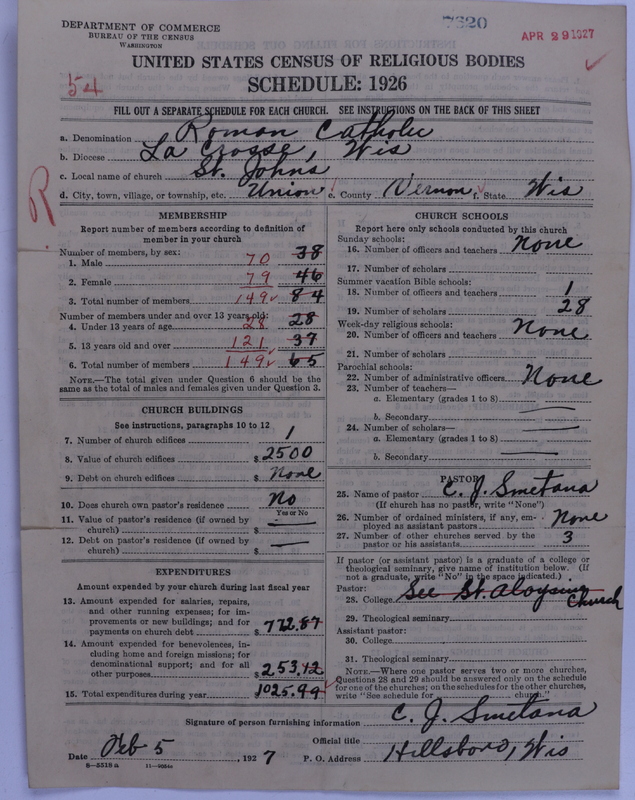 DEPARTMENT OF COMMERCE
BUREAU OF THE CENSUS
WASHINGTON
7620
APR 29 1927
UNITED STATES CENSUS OF RELIGIOUS BODIES
SCHEDULE: 1926
54
FILL OUT A SEPARATE SCHEDULE FOR EACH CHURCH. SEE INSTRUCTIONS ON THE BACK OF THIS SHEET
a. Denomination Roman Catholic
b. Diocese La Crosse, Wis
c. Local name of church St. Johns
d. City, town, village, or township, etc. Union e. County Vernon f. State Wis
R.
MEMBERSHIP
Report number of members according to definition of
member in your church
Number of members, by sex:
1. Male 70 38
2. Female 79 46
3. Total number of members 149 84
Number of members under and over 13 years old:
4. Under 13 years of age 28 28
5. 13 years old and over 121 37
6. Total number of members 149 65
NOTE.—The total given under Question 6 should be the
same as the total of males and females given under Question 3.
CHURCH BUILDINGS
See instructions, paragraphs 10 to 12
7. Number of church edifices 1
8. Value of church edifices $2500
9. Debt on church edifices $None
10. Does church own pastor's residence? No
Yes or No
11. Value of pastor's residence (if owned by
church) $ —
12. Debt on pastor's residence (if owned by
church) $ —
EXPENDITURES
Amount expended by your church during last fiscal year
13. Amount expended for salaries, repairs,
and other running expenses; for im-
provements or new buildings; and for
payments on church debt $772.87
14. Amount expended for benevolences, in-
cluding home and foreign missions; for
denominational support; and for all
other purposes $253.12
15. Total expenditures during year $1025.99
CHURCH SCHOOLS
Report here only schools conducted by this church
Sunday schools:
16. Number of officers and teachers None
17. Number of scholars
Summer vacation Bible schools:
18. Number of officers and teachers 1
19. Number of scholars 28
Week-day religious schools:
20. Number of officers and teachers None
21. Number of scholars
Parochial schools:
22. Number of administrative officers None
23. Number of teachers—
a. Elementary (grades 1 to 8)
b. Secondary —
24. Number of scholars— —
a. Elementary (grades 1 to 8)
b. Secondary —
PASTOR
25. Name of pastor C. J. Smetana
(If church has no pastor, write "None")
26. Number of ordained ministers, if any, em-
ployed as assistant pastors None
27. Number of other churches served by the
pastor or his assistants 3
If pastor (or assistant pastor) is a graduate of a college or
theological seminary, give name of institution below. (If
not a graduate, write "No" in the space indicated.)
Pastor:
28. College See St. Aloysius Church
29. Theological seminary
Assistant pastor:
30. College
31. Theological seminary
NOTE.—Where one pastor serves two or more churches,
Questions 28 and 29 should be answered only on the schedule
for one of the churches; on the schedules for the other churches,
write "See schedule for church."
Signature of person furnishing information C. J. Smetana
Official title
Date Feb 5, 1927 P. O. Address Hillsboro, Wis